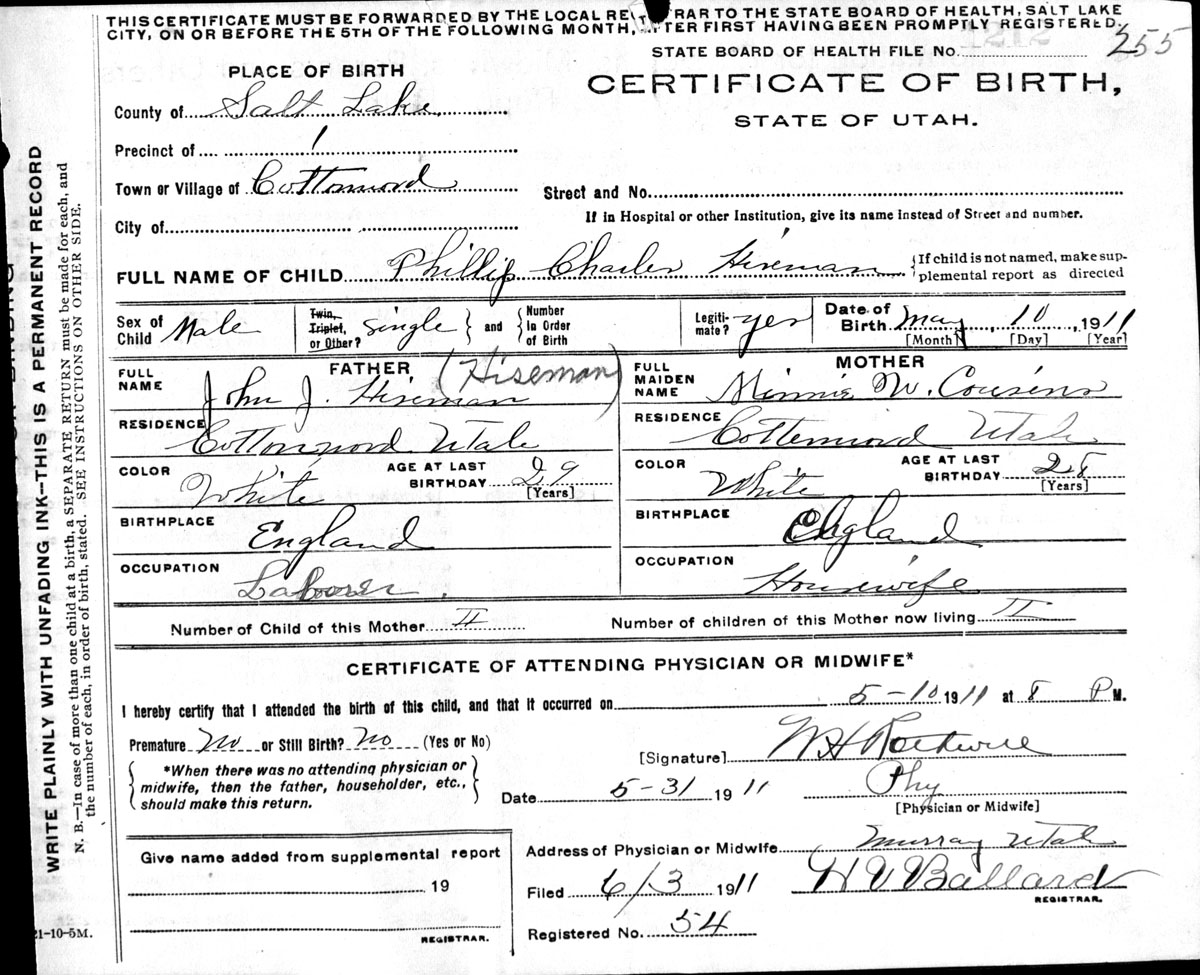 THIS CERTIFICATE MUST BE FORWARDED BY THE LOCAL RE TRAR TO THE STATE BOARD OF HEALTH, SALT LAKE
CITY, ON OR BEFORE THE 5TH OF THE FOLLOWING MONTH, AFTER FIRST HAVING BEEN PROMPTLY REGISTERED.
STATE BOARD OF HEALTH FILE No. 255
PLACE OF BIRTH
CERTIFICATE OF BIRTH,
STATE OF UTAH.
County of Salt Lake
Precinct of 1
Town or Village of Cottonwood
Street and No.
If in Hospital or other Institution, give its name instead of Street and number.
City of
FULL NAME OF CHILD Phillip Charles Hiseman {If child is not named, make sup-
plemental report as directed
Sex of Child Male
Twin, Triplet, or Other? single } and { Number In Order of Birth
Legiti-mate? yes
Date of Birth May, 10, 1911
[Month] [Day] [Year]
FATHER
FULL NAME John J. Hiseman (Hiseman)
MOTHER
FULL MAIDEN NAME Minnie W. Cousins
RESIDENCE Cottonwood Utah
RESIDENCE Cottonwood Utah
COLOR White AGE AT LAST BIRTHDAY 29 [Years]
COLOR White AGE AT LAST BIRTHDAY 28 [Years]
BIRTHPLACE England
BIRTHPLACE England
OCCUPATION Laborer.
OCCUPATION Housewife
Number of Child of this Mother II
Number of children of this Mother now living II
CERTIFICATE OF ATTENDING PHYSICIAN OR MIDWIFE*
I hereby certify that I attended the birth of this child, and that it occurred on 5-10 1911 at 8 P M.
Premature No or Still Birth? No (Yes or No)
[Signature] W H Rothwell
{ *When there was no attending physician or
midwife, then the father, householder, etc.,
should make this return. }
Date 5-31 1911 Phy
[Physician or Midwife]
Give name added from supplemental report
19
REGISTRAR.
Address of Physician or Midwife Murray Utah
Filed 6/3 1911 H V Ballard
REGISTRAR.
Registered No. 54
21-10-5M.
WRITE PLAINLY WITH UNFADING INK—THIS IS A PERMANENT RECORD
N. B.—In case of more than one child at a birth, a SEPARATE RETURN must be made for each, and
the number of each, in order of birth, stated. SEE INSTRUCTIONS ON OTHER SIDE.